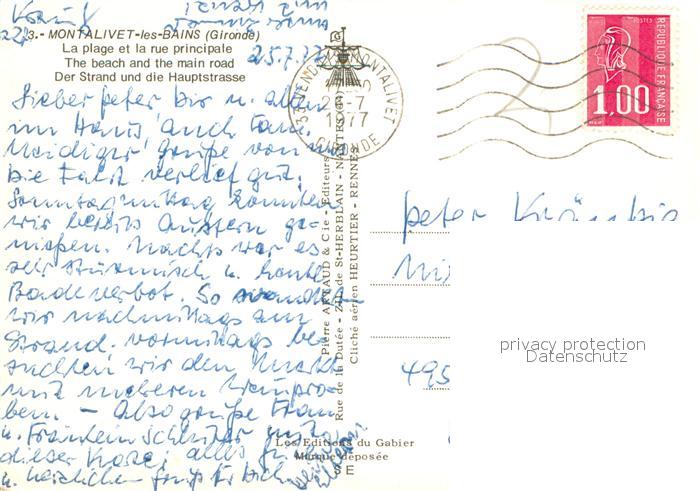 25.7.77
3.- MONTALIVET-les-BAINS (Gironde)
La plage et la rue principale
The beach and the main road
Der Strand und die Hauptstrasse
Lieber Peter Dir u. allen
im Haus auch Fam.
Grüße von uns
Die Fahrt verlief gut.
Sonntagmittag konnten
wir bereits Austern ge-
nießen. Nachts war es
sehr stürmisch u. heute
Badeverbot. So
wir nachmittags am
Strand. vormittags be-
suchten wir den Markt
mit mehreren Weinpro-
ben. - Also grüße Frau
u. Fräulein mit
dieser Karte; alles
u. herzlichen Gruß für Dich
33 VENDAYS MONTALIVET
25-7
1977
GIRONDE
POSTES
REPUBLIQUE FRANÇAISE
1,00
Pierre ARTAUD & Cie - Editeurs
Rue de la Dutée - Z.I. de St-HERBLAIN - NANTES
Cliché aérien HEURTIER - RENNES
Peter
495
Les Editions du Gabier
Marque déposée
S E
privacy protection
Datenschutz